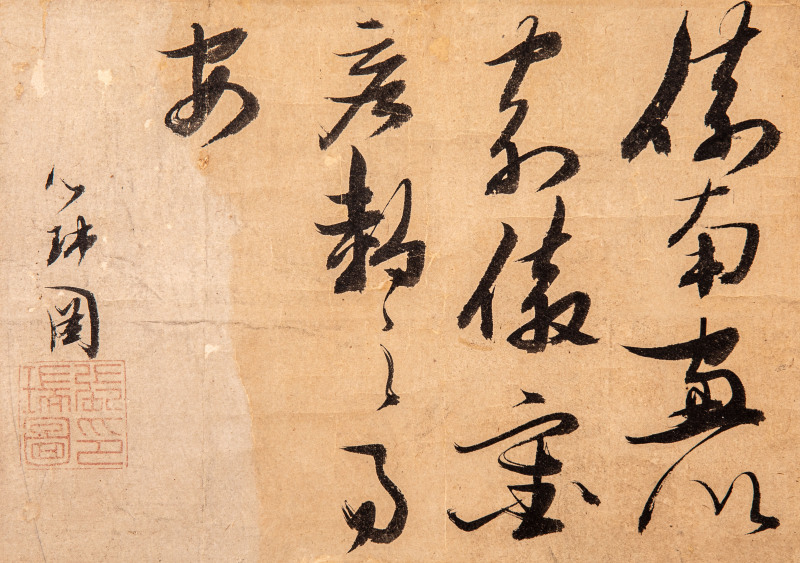 倚南窗以
寄傲審
容膝之易
安
瑞圖
張印
瑞圖